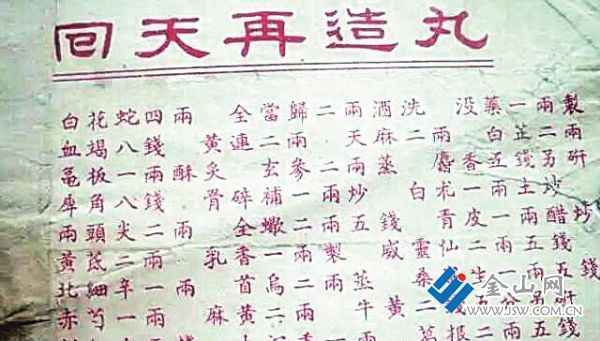 回天再造丸
白花蛇四兩 全當歸二兩酒洗 没藥一兩製
血竭八錢 黃連二兩 天麻二兩 白芷二兩
龜板一兩酥炙 玄參二兩蒸 麝香五錢另研
犀角八錢 骨碎補一兩炒 白朮一兩土炒
兩頭尖二兩 全蠍二兩五錢 青皮一兩醋炒
黃芪二兩 乳香一兩製 威靈仙二兩五錢
北細辛一兩 首烏二兩蒸 桑 生一兩五錢
赤芍一兩 麻黃二兩 牛黃二錢五分另研
葛根二兩五錢
金山网
WWW.JSW.COM.CN